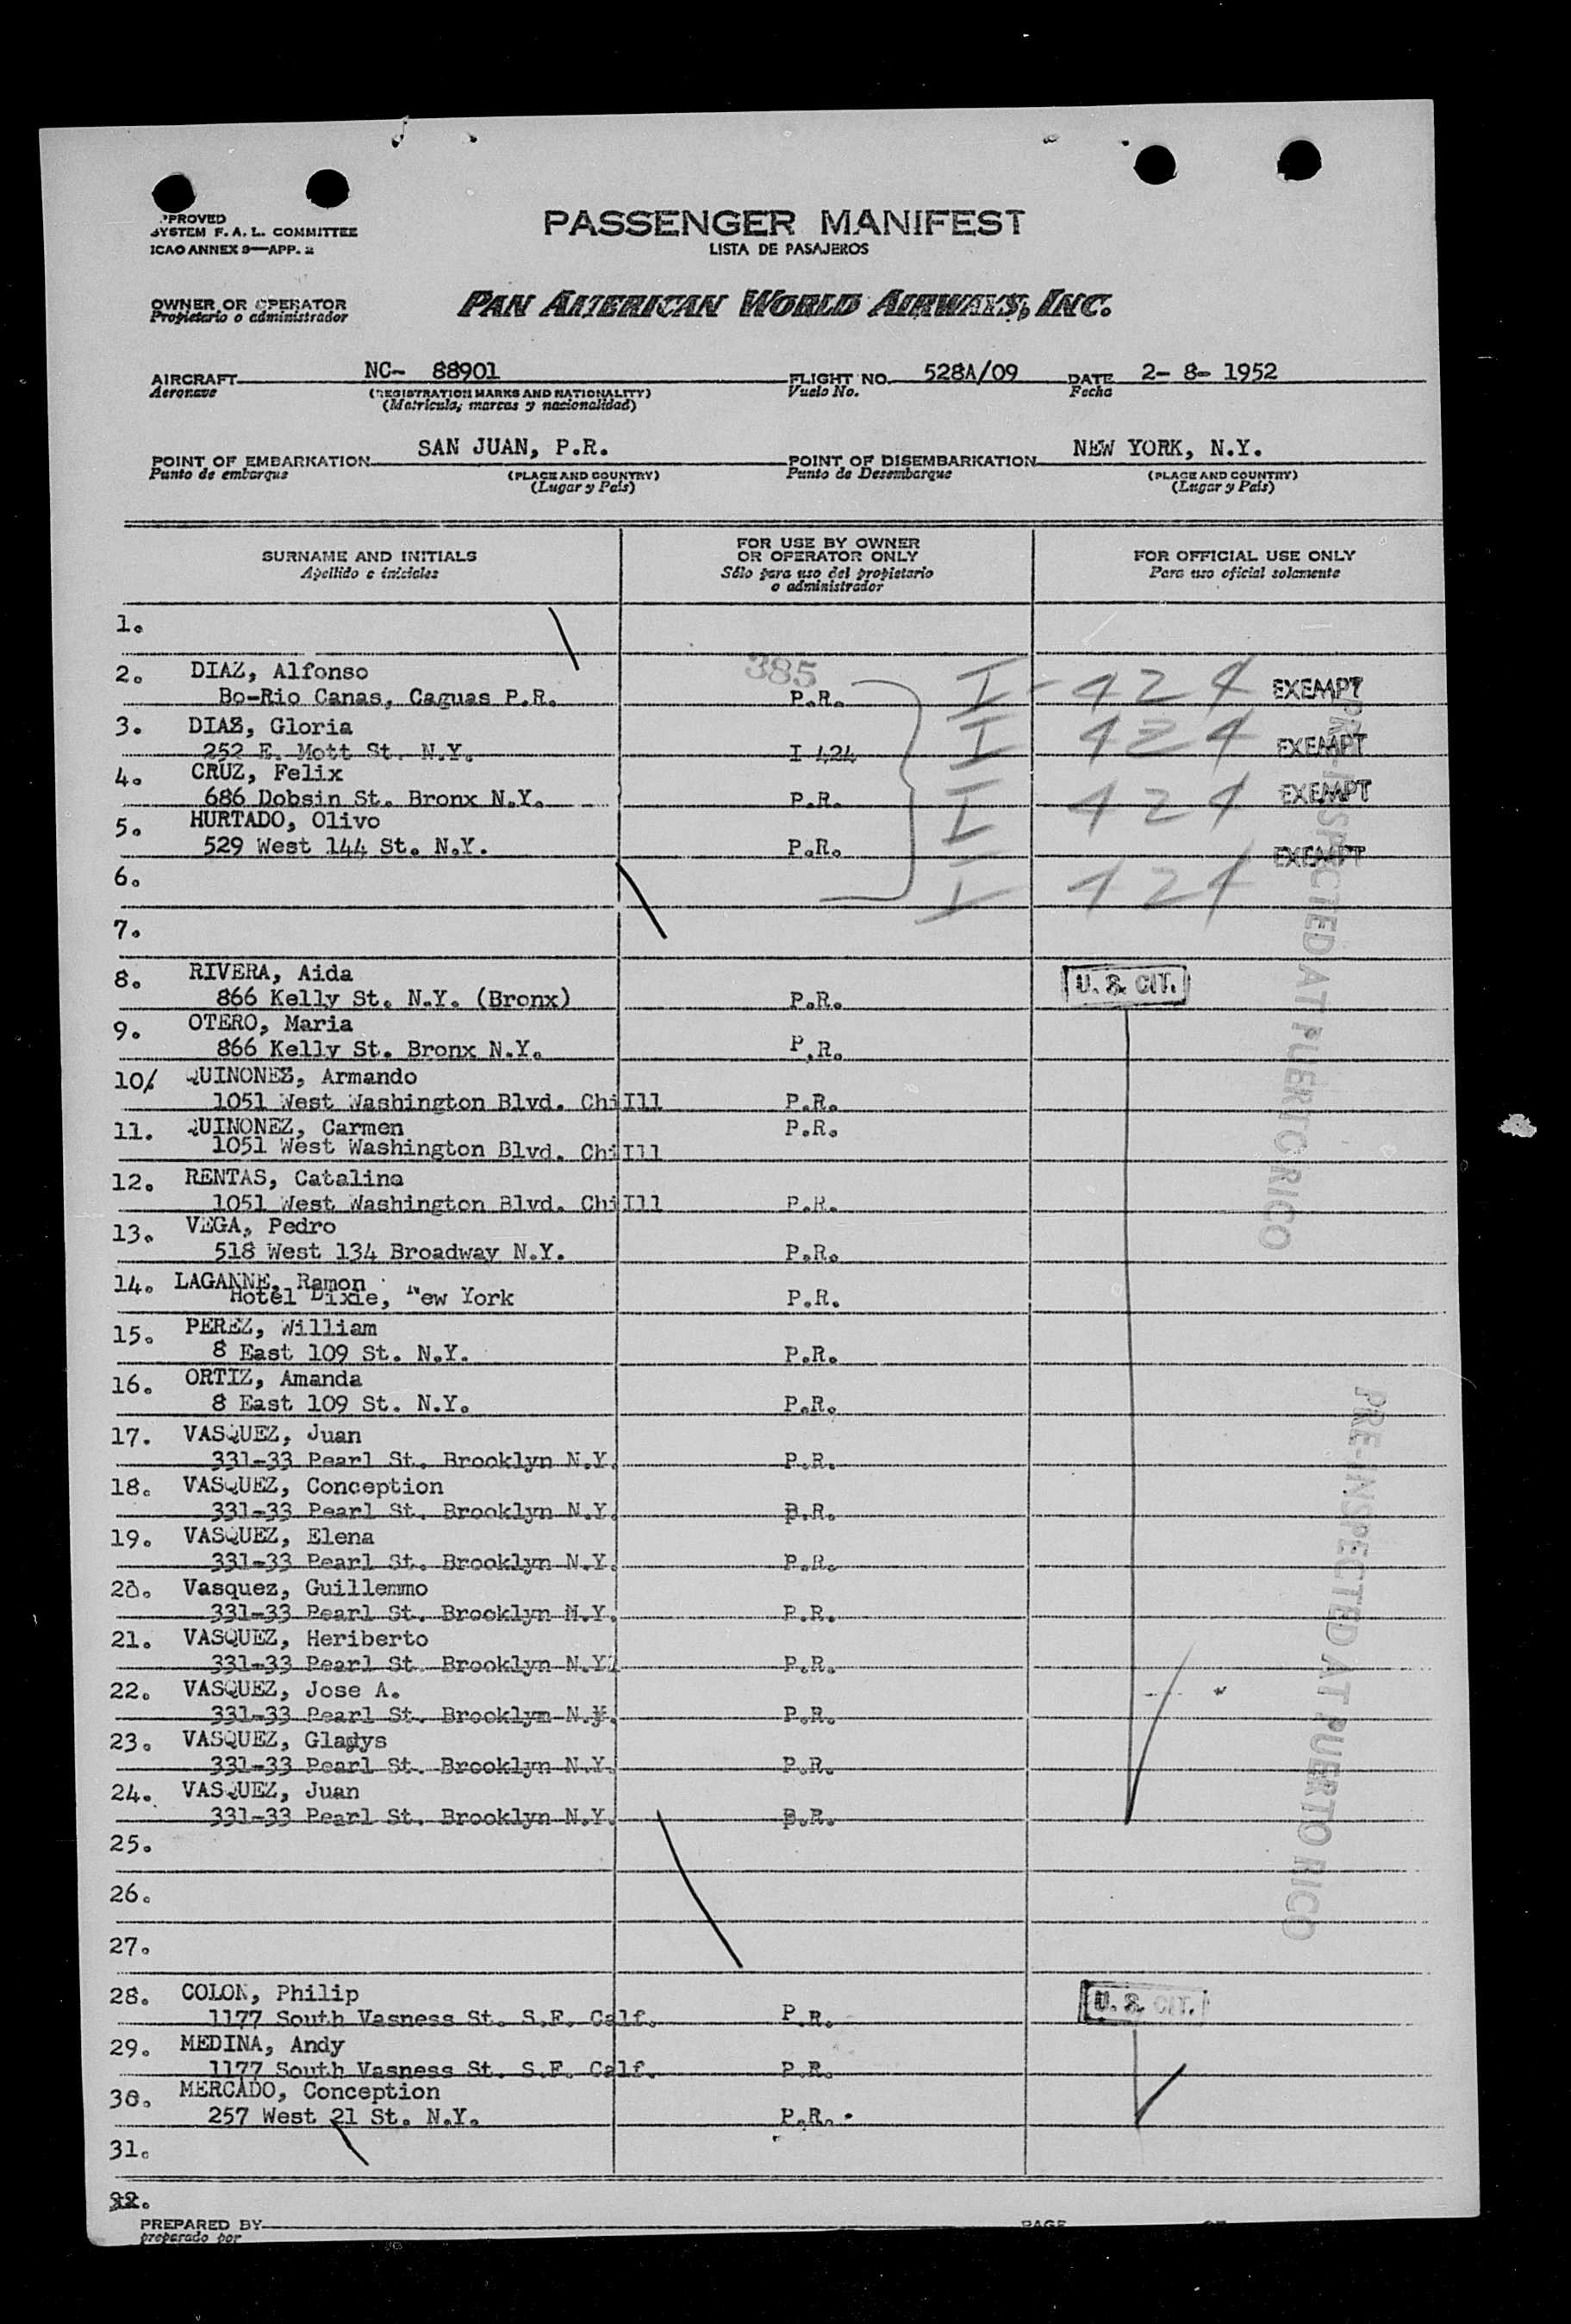 PPROVED
SYSTEM F. A. L. COMMITTEE
ICAO ANNEX 9—APP. 2
PASSENGER MANIFEST
LISTA DE PASAJEROS
OWNER OR OPERATOR
Propietario o administrador
PAN AMERICAN WORLD AIRWAYS, INC.
AIRCRAFT NC- 88901 FLIGHT NO. 528A/09 DATE 2- 8- 1952
Aeronave (REGISTRATION MARKS AND NATIONALITY) Vuelo No. Fecha
(Matricula, marcas y nacionalidad)
POINT OF EMBARKATION SAN JUAN, P.R. POINT OF DISEMBARKATION NEW YORK, N.Y.
Punto de embarque (PLACE AND COUNTRY) Punto de Desembarque (PLACE AND COUNTRY)
(Lugar y País) (Lugar y País)
SURNAME AND INITIALS
Apellido e iniciales
FOR USE BY OWNER
OR OPERATOR ONLY
Sólo para uso del propietario
o administrador
FOR OFFICIAL USE ONLY
Para uso oficial solamente
1.
2. DIAZ, Alfonso 385
Bo-Rio Canas, Caguas P.R. P.R. I-424 EXEMPT
3. DIAZ, Gloria
252 E. Mott St. N.Y. I 424 I 424 EXEMPT
4. CRUZ, Felix
686 Dobsin St. Bronx N.Y. P.R. I 424 EXEMPT
5. HURTADO, Olivo
529 West 144 St. N.Y. P.R. EXEMPT
6. I 424
7.
8. RIVERA, Aida U. S. CIT.
866 Kelly St. N.Y. (Bronx) P.R.
9. OTERO, Maria
866 Kelly St. Bronx N.Y. P.R.
10. QUINONEZ, Armando
1051 West Washington Blvd. Chi Ill P.R.
11. QUINONEZ, Carmen P.R.
1051 West Washington Blvd. Chi Ill
12. RENTAS, Catalina
1051 West Washington Blvd. Chi Ill P.R.
13. VEGA, Pedro
518 West 134 Broadway N.Y. P.R.
14. LAGANNE, Ramon
Hotel Dixie, New York P.R.
15. PEREZ, William
8 East 109 St. N.Y. P.R.
16. ORTIZ, Amanda
8 East 109 St. N.Y. P.R.
17. VASQUEZ, Juan
331-33 Pearl St. Brooklyn N.Y. P.R.
18. VASQUEZ, Conception
331-33 Pearl St. Brooklyn N.Y. P.R.
19. VASQUEZ, Elena
331-33 Pearl St. Brooklyn N.Y. P.R.
20. Vasquez, Guillemmo
331-33 Pearl St. Brooklyn N.Y. P.R.
21. VASQUEZ, Heriberto
331-33 Pearl St. Brooklyn N.Y. P.R.
22. VASQUEZ, Jose A.
331-33 Pearl St. Brooklyn N.Y. P.R.
23. VASQUEZ, Gladys
331-33 Pearl St. Brooklyn N.Y. P.R.
24. VASQUEZ, Juan
331-33 Pearl St. Brooklyn N.Y. P.R.
25.
26.
27.
28. COLON, Philip U. S. CIT.
1177 South Vasness St. S.F. Calf. P.R.
29. MEDINA, Andy
1177 South Vasness St. S.F. Calf. P.R.
30. MERCADO, Conception
257 West 21 St. N.Y. P.R.
31.
PRE-INSPECTED AT PUERTO RICO
PRE-INSPECTED AT PUERTO RICO
PREPARED BY PAGE
preparado por